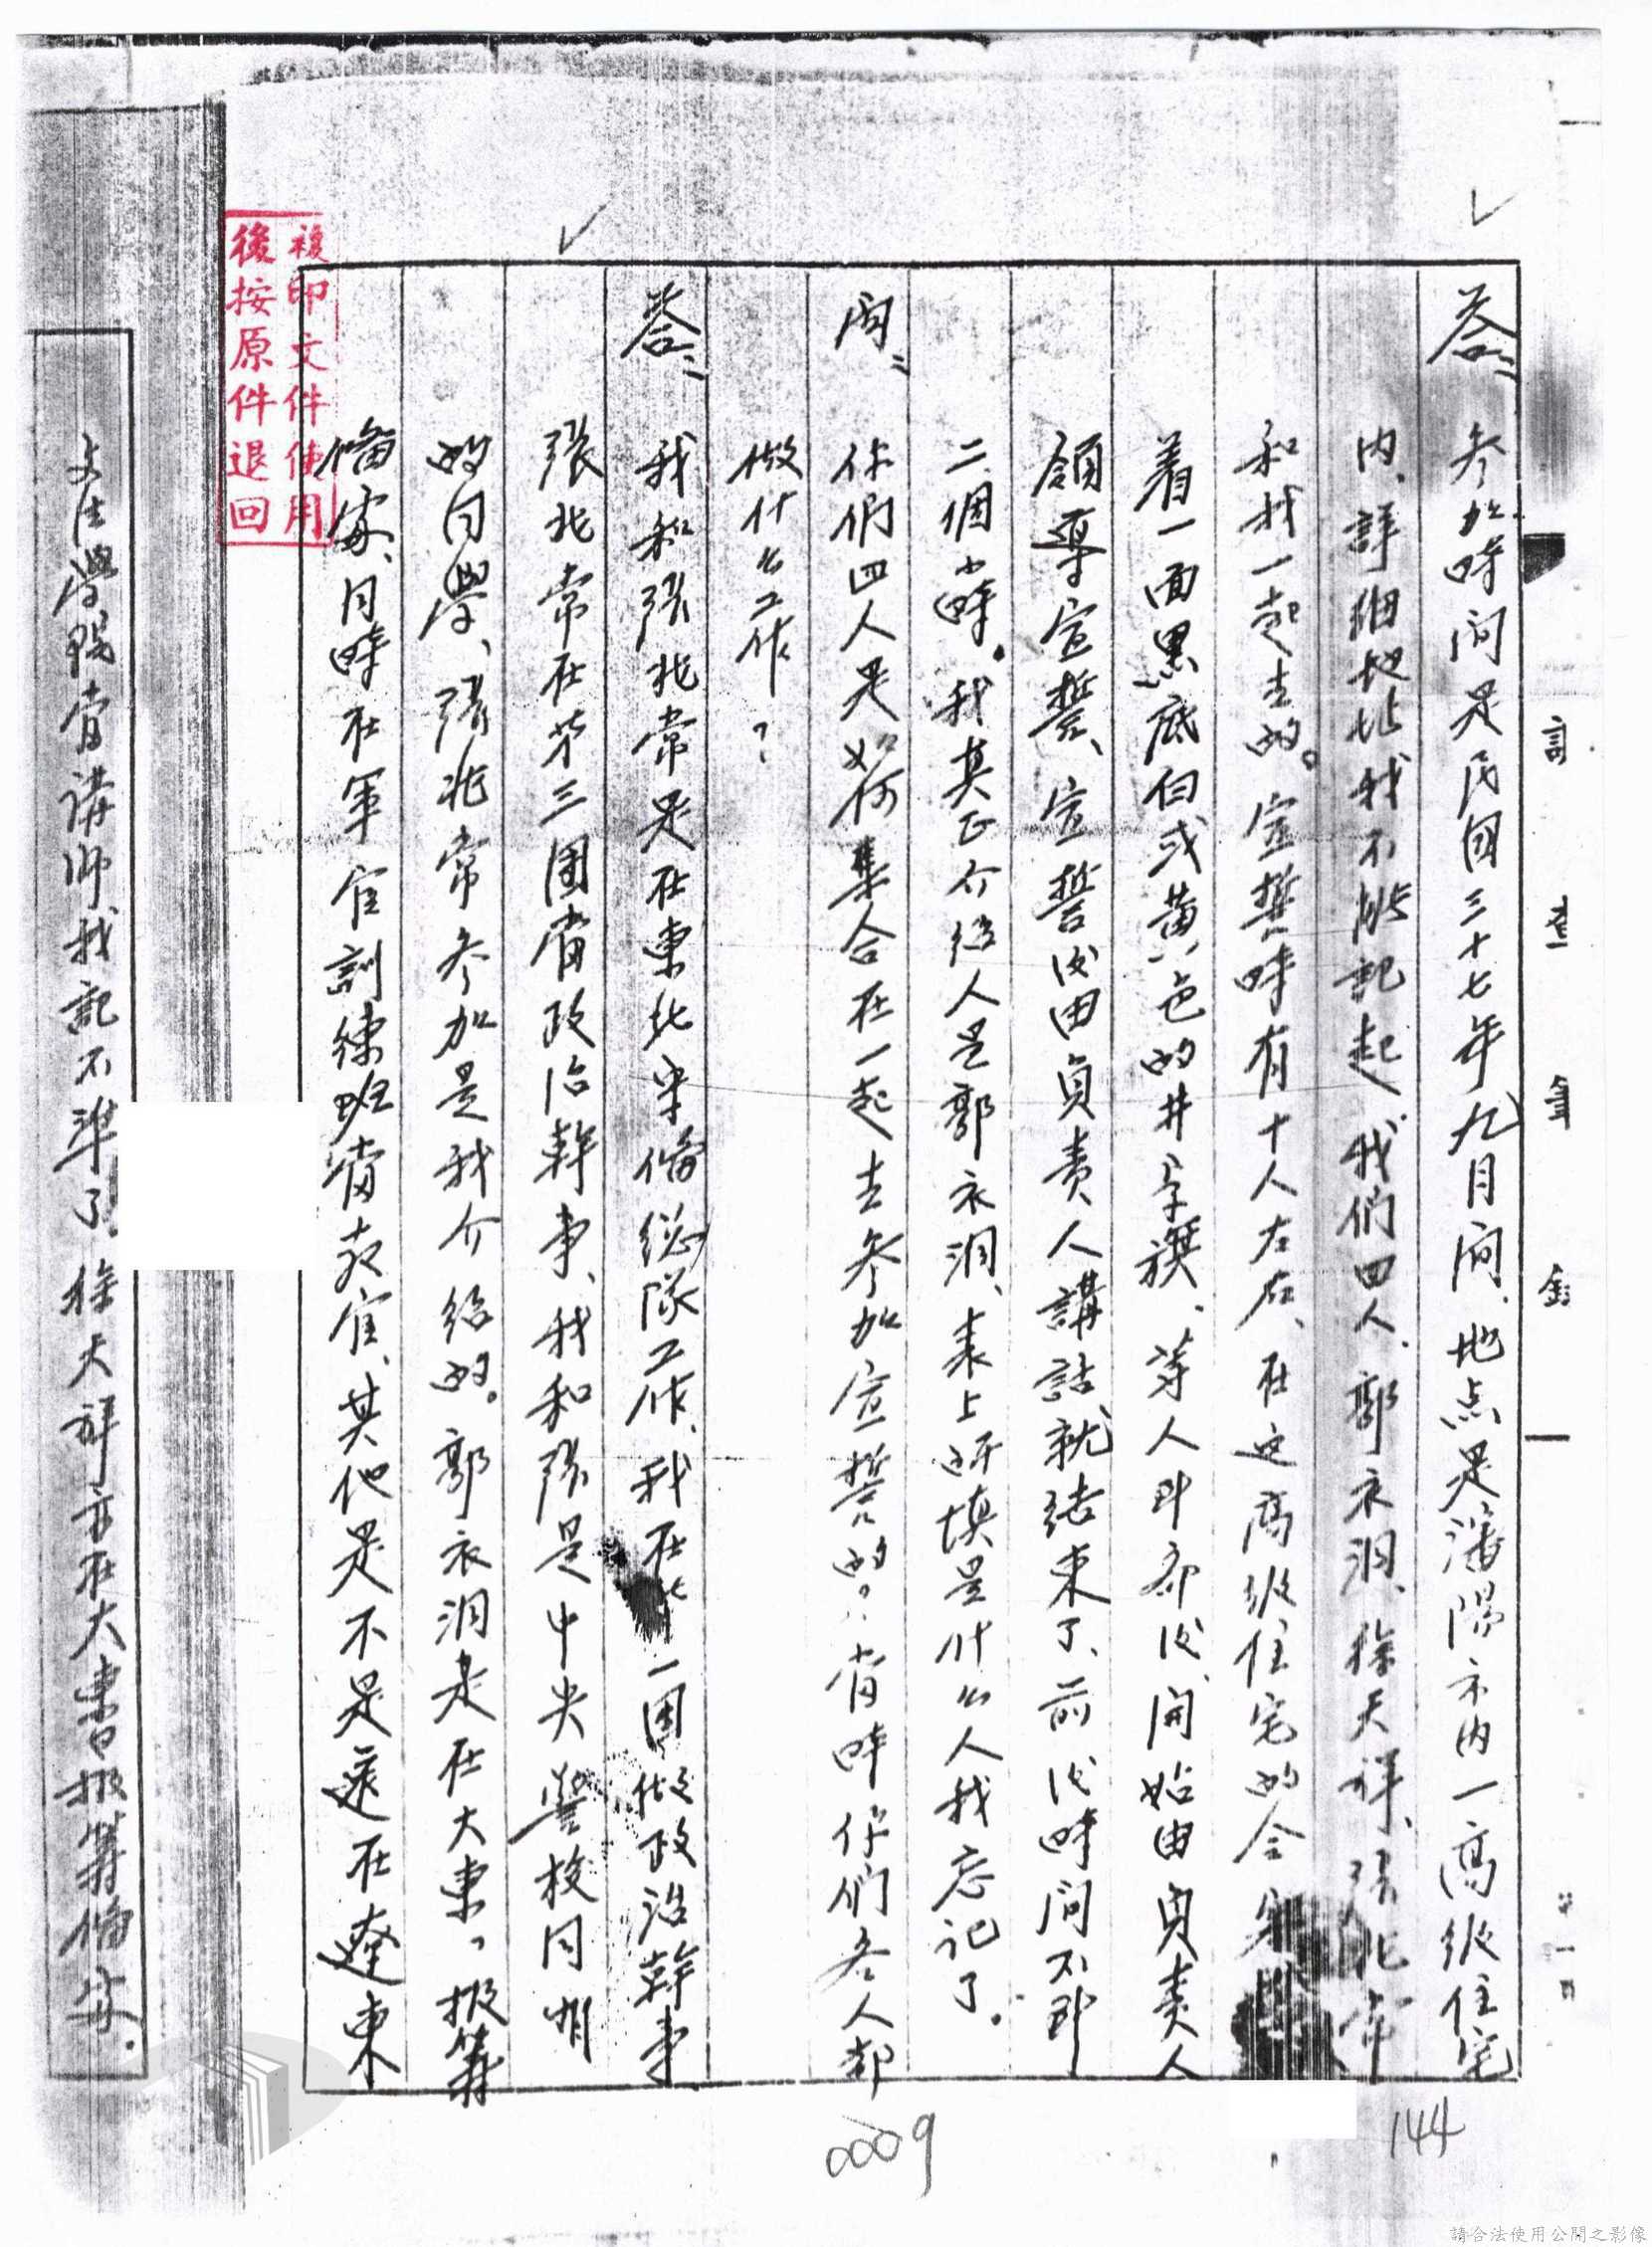 訊問筆錄
第一頁
答：參加時间是民国三十七年九月间、地点是瀋陽市內一高级住宅
內、詳细地址我不能記起、我们四人、郭衣洞、徐天祥、張兆常
和我一起去的。宣誓時有十人左右、在这高级住宅的会客
着一面黑底白或黄色的井字旗、等人到齐后、開始由負责人
領導宣誓、宣誓后由負责人講話就结束了、前后時间不到
二個小時。我真正介绍人是郭衣洞、表上所填是什么人我忘记了。
问：你們四人是如何集合在一起去參加宣誓的？当時你们各人都
做什么工作？
答：我和張兆常是在東北守備總隊工作、我在 一团做政治幹事
張兆常在第三團當政治幹事、我和張是中央警校同期
的同學、張兆常參加是我介绍的。郭衣洞是在大東報籌
備處、同時在軍官訓練班當教官、其他是不是還在遼東
文法學院當講師我記不準了、徐天祥亦在大東日报籌備處。
複印文件使用
後按原件退回
0009
144
請合法使用公開之影像